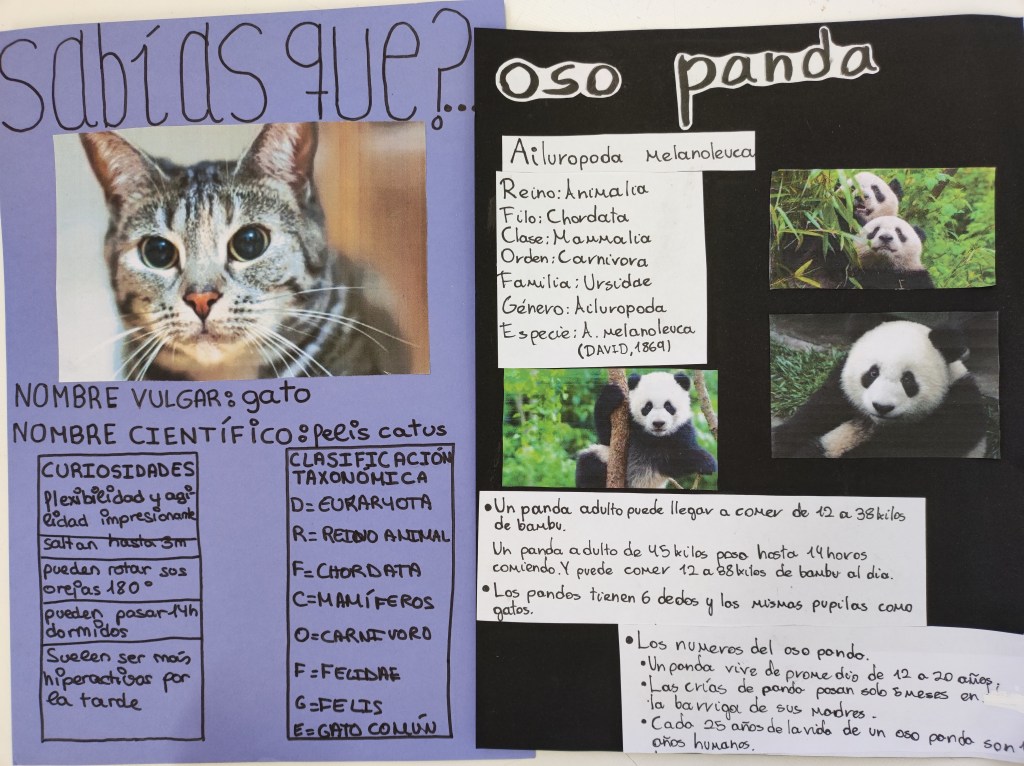 sabías que?...
NOMBRE VULGAR: gato
NOMBRE CIENTÍFICO: pelis catus
CURIOSIDADES
flexibilidad y agi-
lidad impresionante
saltan hasta 3m
pueden rotar sus
orejas 180°
pueden pasar 14h
dormidos
Suelen ser más
hiperactivos por
la tarde
CLASIFICACIÓN
TAXONÓMICA
D=EUKARYOTA
R=REINO ANIMAL
F=CHORDATA
C=MAMÍFEROS
O=CARNIVORO
F=FELIDAE
G=FELIS
E=GATO COMÚN
oso panda
Ailuropoda Melanoleuca
Reino: Animalia
Filo: Chordata
Clase: Mammalia
Orden: Carnivora
Familia: Ursidae
Género: Ailuropoda
Especie: A. melanoleuca
(DAVID, 1869)
• Un panda adulto puede llegar a comer de 12 a 38 kilos
de bambu.
Un panda adulto de 45 kilos pasa hasta 14 horas
comiendo. Y puede comer 12 a 38 kilos de bambu al dia.
• Los pandas tienen 6 dedos y las mismas pupilas como
gatos.
• Los numeros del oso panda.
• Un panda vive de promedio de 12 a 20 años,
• Las crías de panda pasan solo 5 meses en
la barriga de sus madres.
• Cada 25 años de la vida de un oso panda son
años humanos.